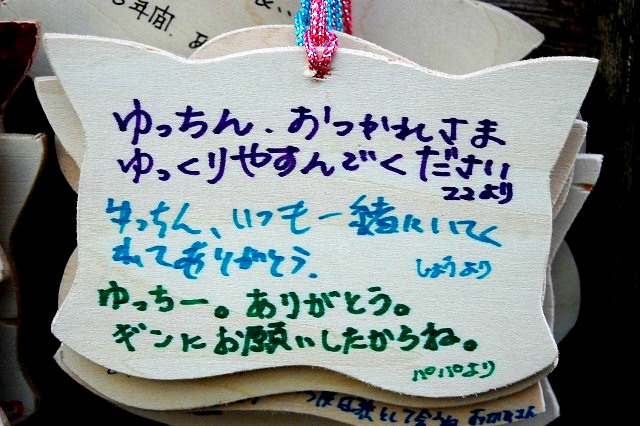 5年間、
ゆっちん、おつかれさま
ゆっくりやすんでください
ココより
ゆっちん、いつも一緒にいてく
れてありがとう.
しょうより
ゆっちー。ありがとう。
ギンにお願いしたからね。
パパより